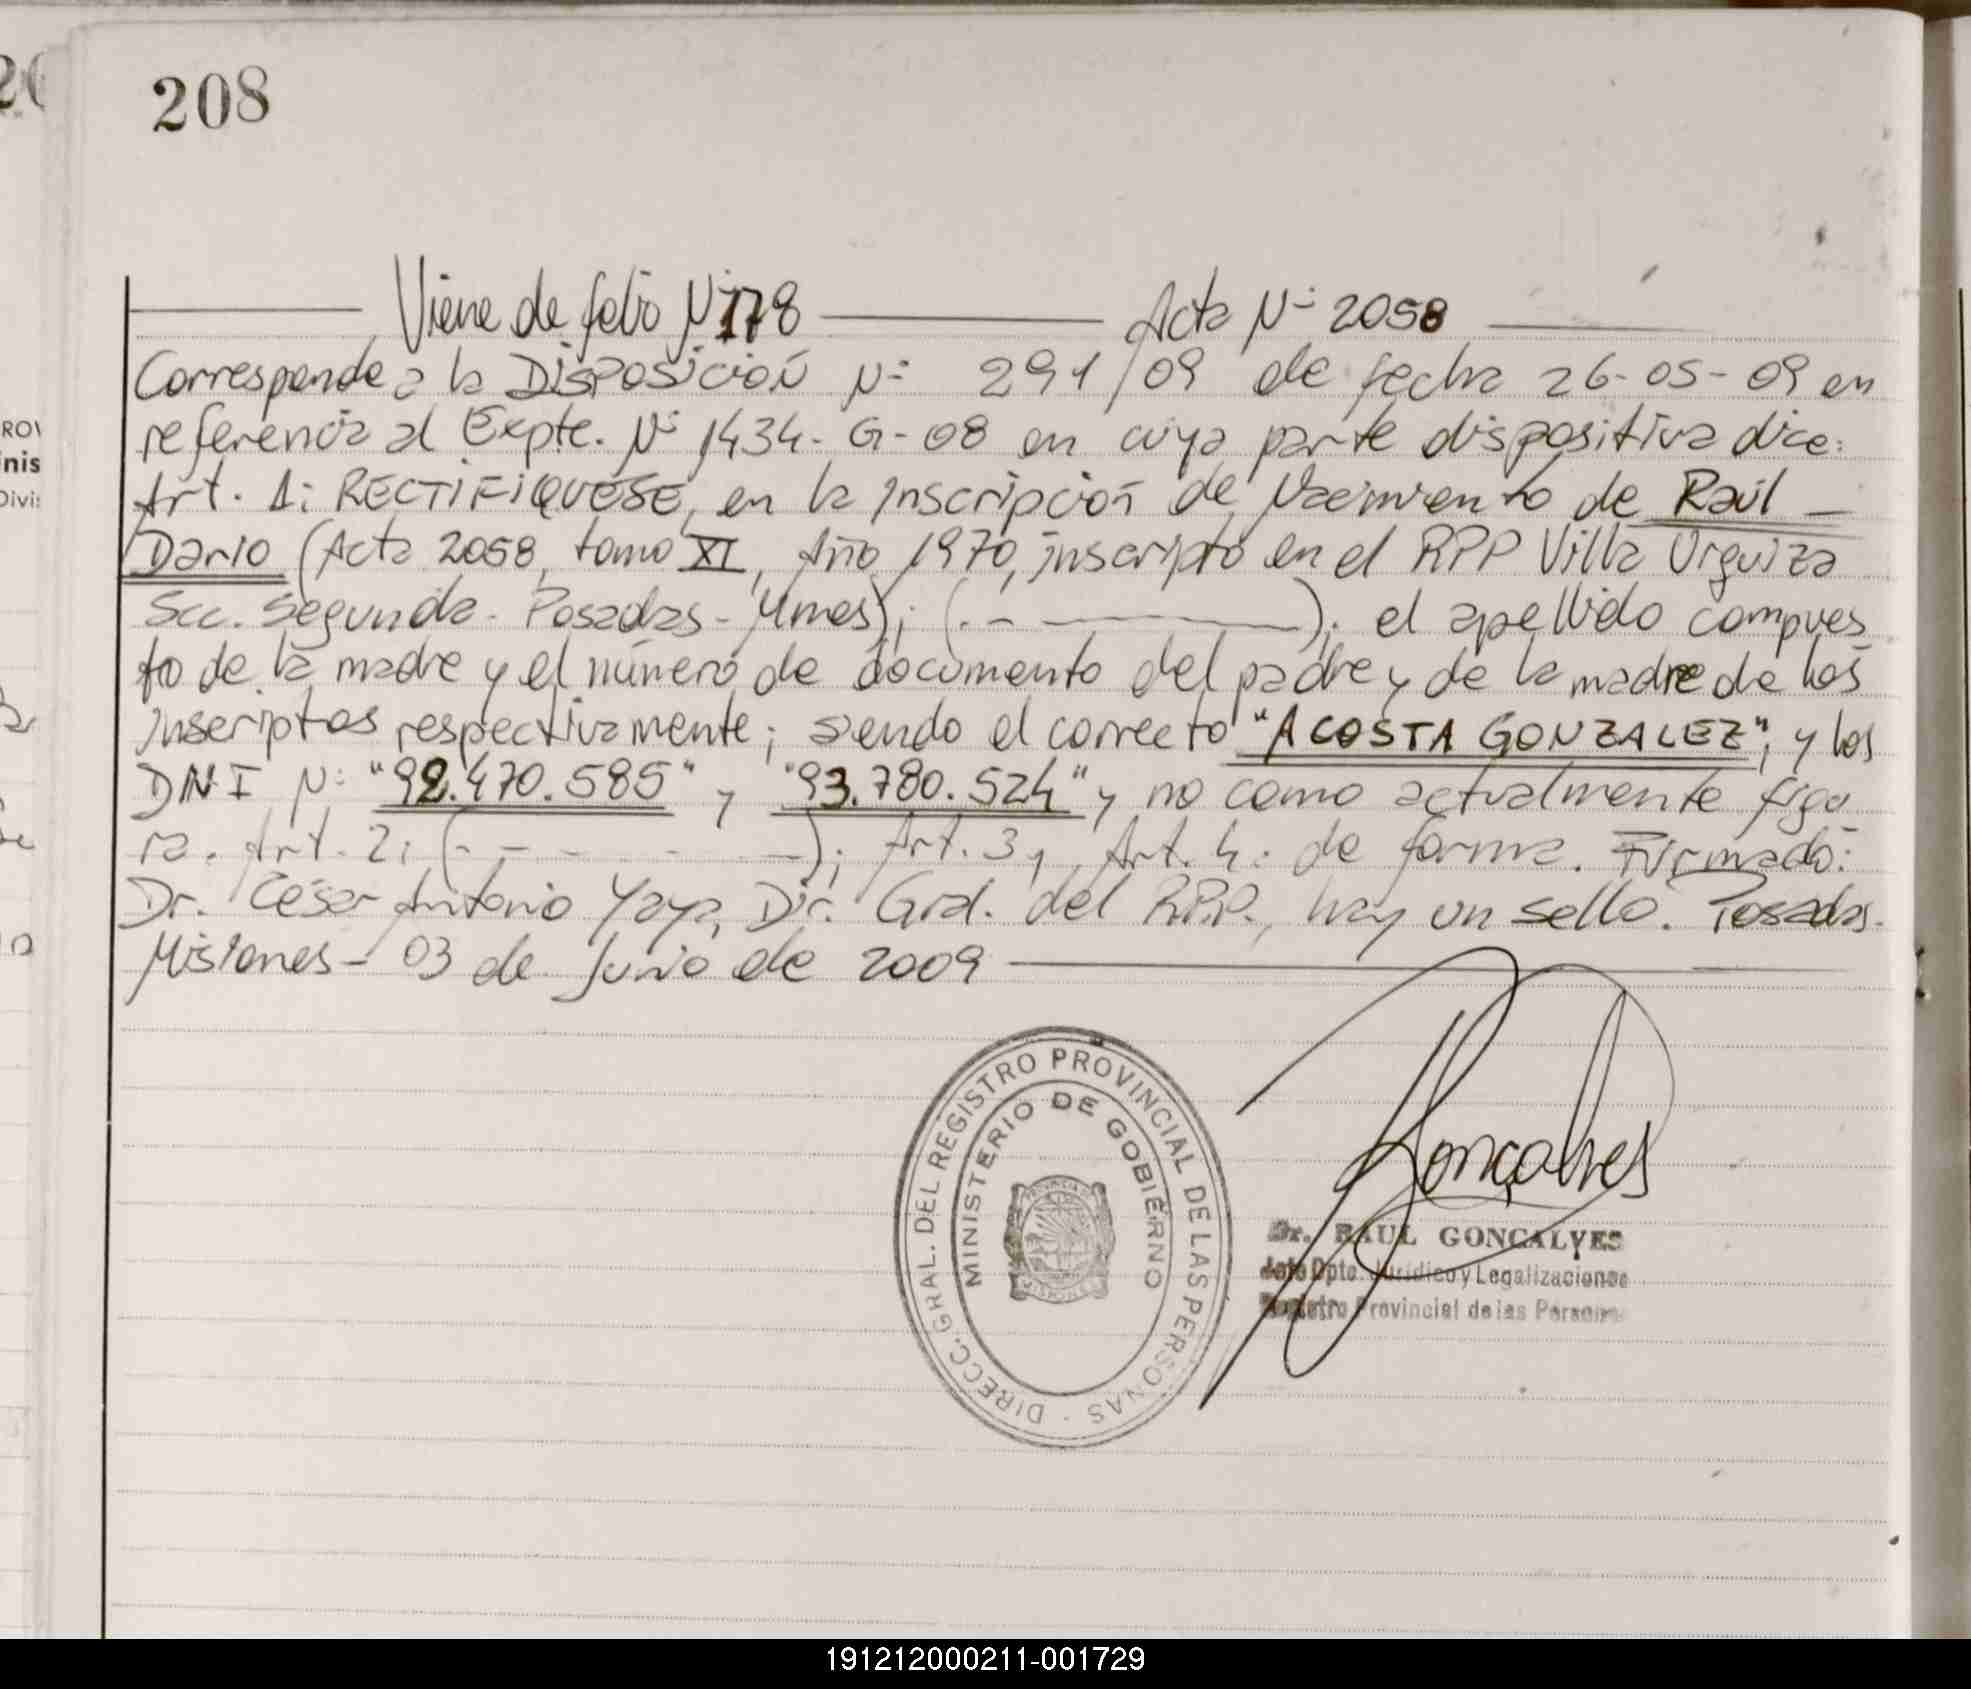 208
Viene de folio Nº 178 Acta Nº 2058
Corresponde a la DISPOSICIÓN Nº 291/09 de fecha 26-05-09 en
referencia al Expte. Nº 1434-G-08 en cuya parte dispositiva dice:
Art. 1: RECTIFIQUESE, en la Inscripción de Nacimiento de Raúl
Dario (Acta 2058, tomo XI, Año 1970, inscripto en el RPP Villa Urquiza
Scc. Segunda - Posadas - Mnes); (.- ); el apellido compues
to de la madre y el número de documento del padre y de la madre de los
inscriptos respectivamente; siendo el correcto "ACOSTA GONZALEZ", y los
DNI Nº: "92.470.585" y "93.780.524" y no como actualmente figu
ra. Art. 2: (- - - - - -); Art. 3 y Art. 4: de forma. Firmado:
Dr. César Antonio Yaya, Dir. Gral. del RPP., hay un sello. Posadas.
Misiones - 03 de Junio de 2009
DIRECC. GRAL. DEL REGISTRO PROVINCIAL DE LAS PERSONAS
MINISTERIO DE GOBIERNO
PROVINCIA DE
MISIONES
Gonçalves
Dr. RAUL GONCALVES
Jefe Dpto. Jurídico y Legalizaciones
Registro Provincial de las Personas
191212000211-001729